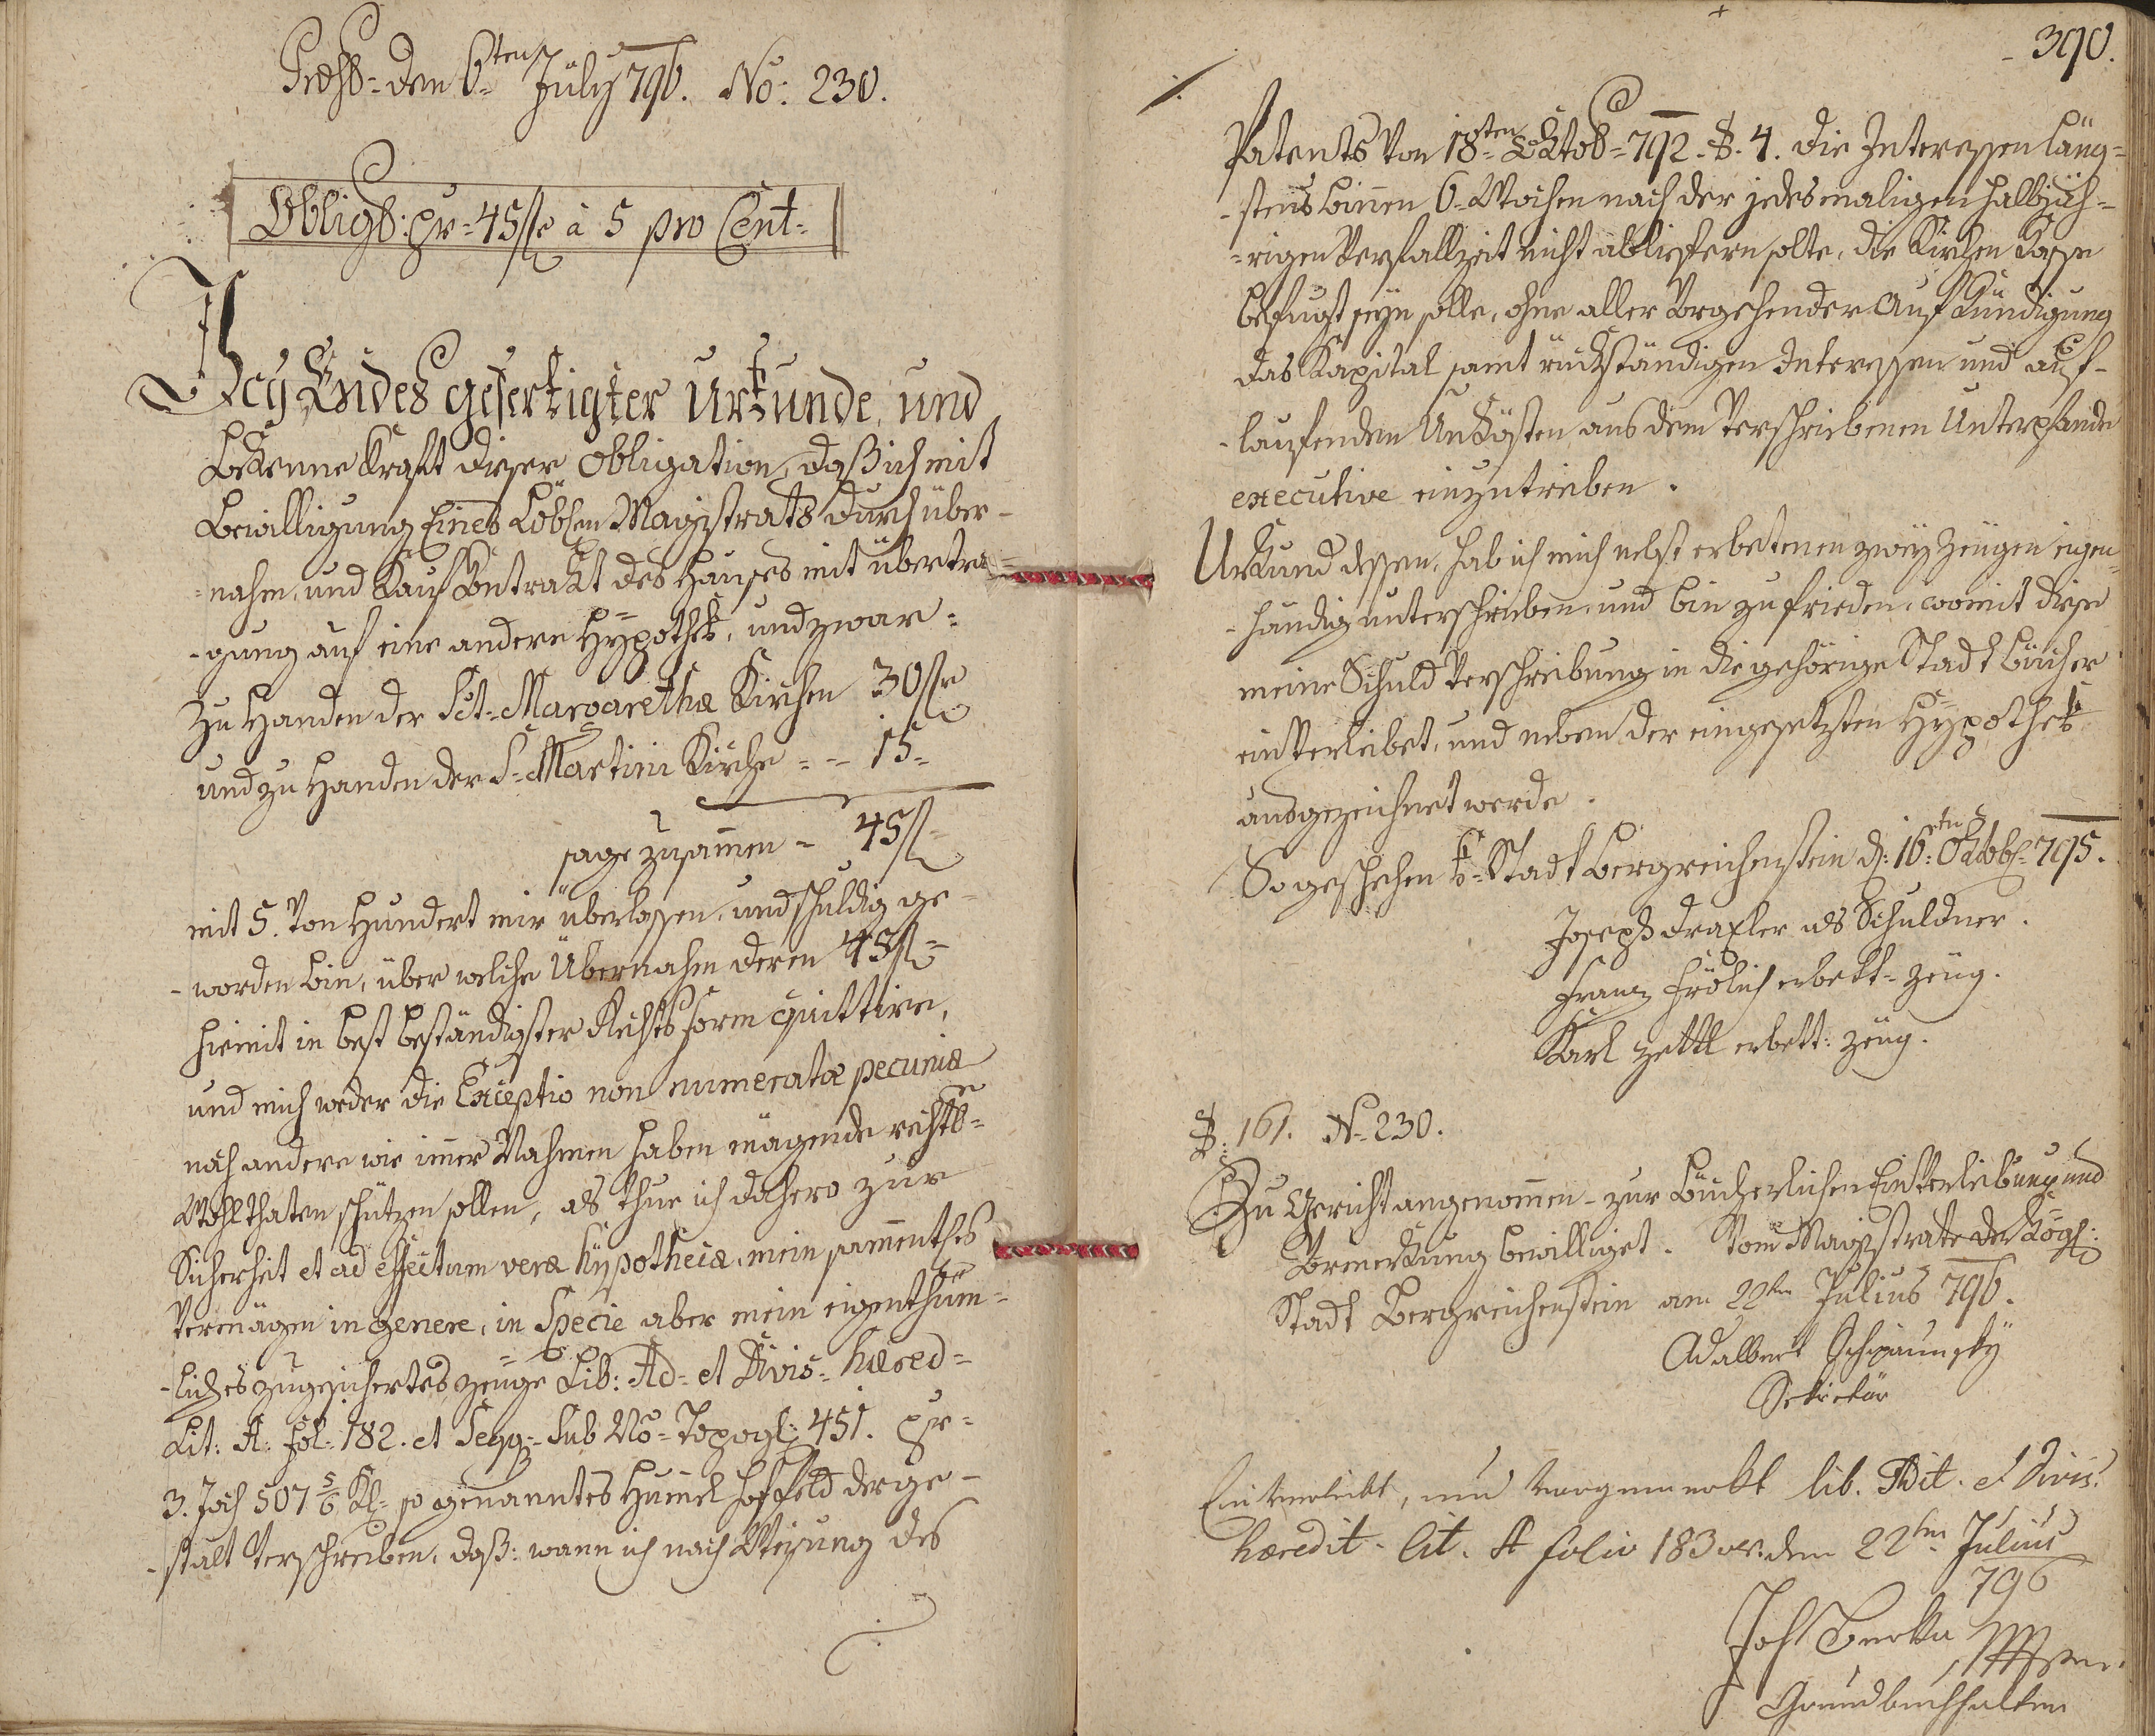 Præs= den 6ten July 796. No: 230.
Obligs: pr= 45 fl à 5 pro Cent=
Ich Endes gefertigter Urkunde, und
bekenne Kraft dieser Obligation, daß ich mit
Bewilligung Eines Löbhen Magistrats durch über-
=nahm, und Kauf Contrakt des Hauses mit übertra=
-gung auf eine andere Hypothek, und zwar=
zu Handen der Sct= Margarethæ Kirchen 30 fl
und zu Handen der S= Martini Kirche = - 15=
sage zusam̅en - 45 fl
mit 5. von Hundert mir überlassen, und schuldig ge-
-worden bin, über welche Übernahm deren 45 fl=
hiemit in best beständigster Rechtsform quittire,
und mich weder die Exceptio non numeratæ pecuniæ
noch andere wie im̅er Nahmen haben mögende rechts=
Wohlthaten schützen sollen, als thue ich dahero zur
Sicherheit et ad effectum veræ hypothecæ, mein sam̅entlhes
Vermögen in genere, in Specie aber mein eigenthüm-
-liches zugesichertes zeuge Lib: Ad= et Divis= hæred=
Lit: A: fol: 182. et Seqq= sub No= Topogh: 451. pr=
3. Joch 507 5/6 Kl= so genanntes Hum̅el Hoffeld derge-
-stalt verschreiben, daß: wann ich nach Weisung des
390.
Patents von 18ten Oktob= 792. §. 4. die Interessen läng=
-stens binnen 6= Wochen nach der jedesmaligen halbjäh-
=rigen Verfallzeit nicht abliefern solte, die Kirchen Kasse
befugt seyn solle, ohne aller Vorgehender Aufkündigung
das Kapital samt rückständigen Interessen und auf-
-laufenden Unkösten aus dem verschriebenen Unterpfande
executive einzutreiben.
Urkund dessen, hab ich mich nebst erbetenen zwey Zeugen eigen=
-händig unterschrieben, und bin zufrieden, womit diese
meine Schuld Verschreibung in die gehörige Stadt Bücher
einverleibet, und neben der eingesetzten Hypothek
ausgezeichnet werde.
So geschehen k= Stadt Bergreichenstein d: 16ten Oktobl= 795.
Joseph Draxler als Schuldner.
Franz Frölich erbett= Zeug.
Karl Zettl erbett: Zeug.
§: 161. N= 230.
Zu Gericht angenom̅en - zur Bücherlichen Einverleibung und
Vormerkung bewilliget. Vom Magistrate der Kögl:
Stadt Bergreichenstein am 22ten Julius 796.
Adalbert
Sekretär
Einverleibt, und vorgemerkt lib. Adit. et Divis.
hæredit. lit. A folio 183 vs. den 22ten Julius
796
Joh Berka
Grundbuchhalter